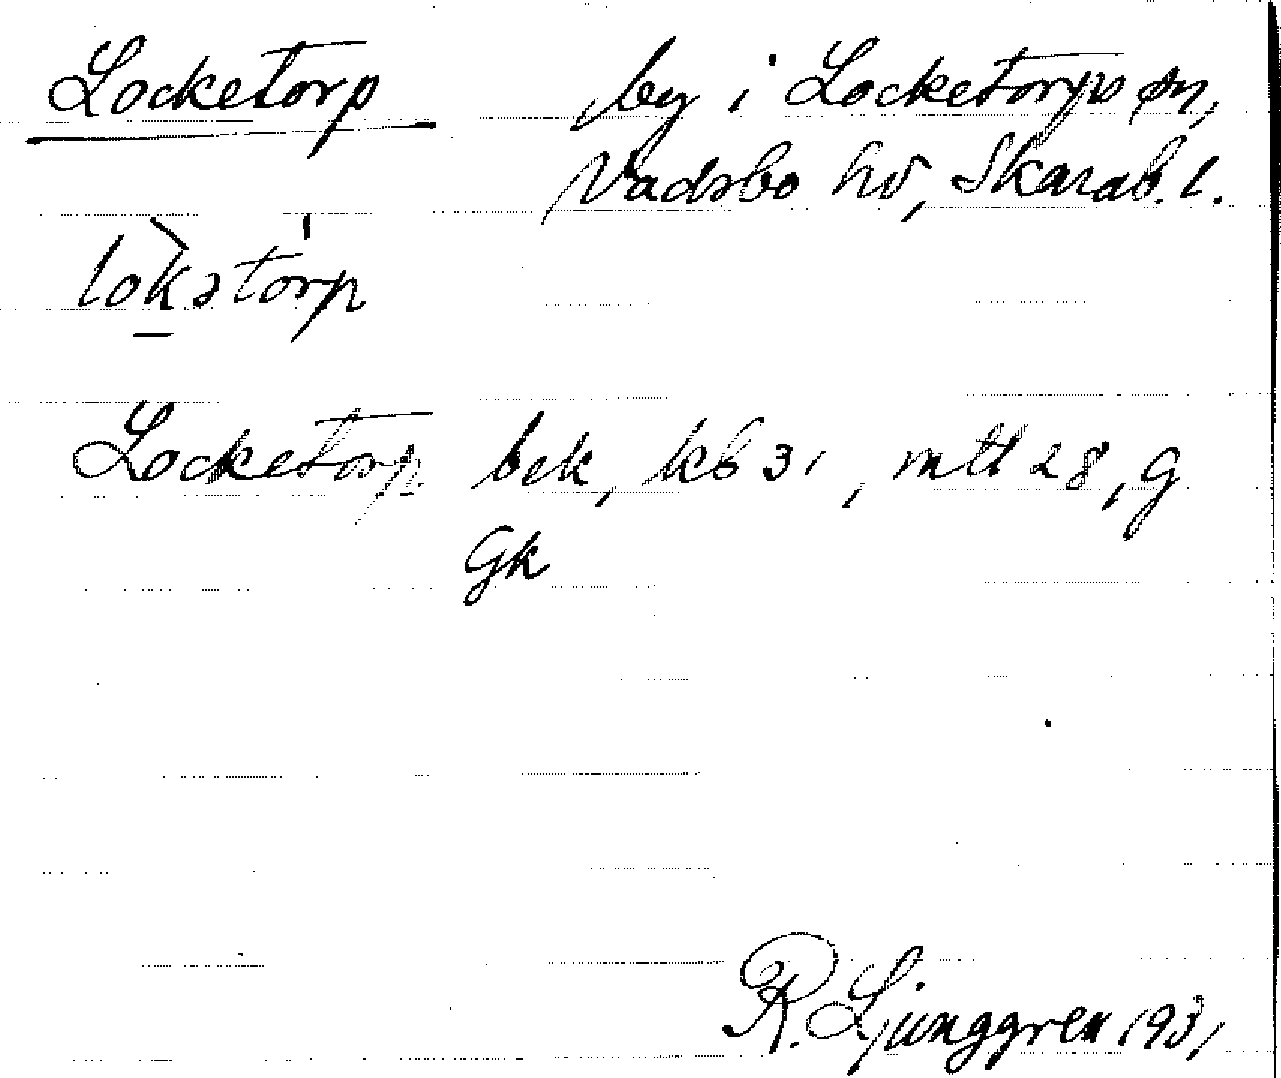 Locketorp by i Locketorps sn,
Vadsbo hd, Skarab. l.
lòkətórp
Locketorp bek, kb 31, mtl 28, G
Gk
R. Ljunggren 1931